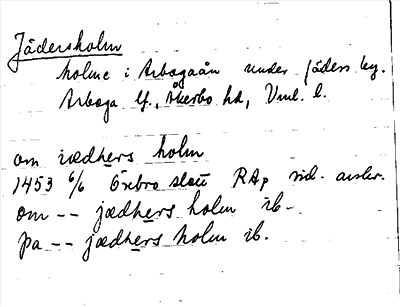 Jädersholm
holme i Arbogaån under Jäders by.
Arboga lf., Åkerbo hd, Vml. l.
om iædhers holm
1453 6/6 Örebro slott RAp vid. avskr.
om -- jædhers holm ib -
pa -- jædhers holm ib.